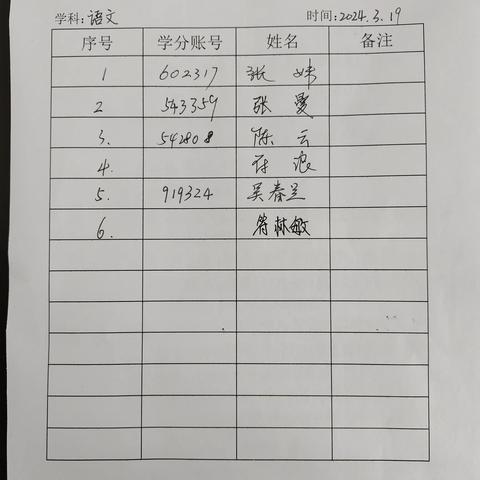 学科:语文 时间:2024.3.19
序号 学分账号 姓名 备注
1 602317 张妹
2 543359 张曼
3. 542808 陈云
4. 浪
5. 919324 吴春兰
6. 符林敏